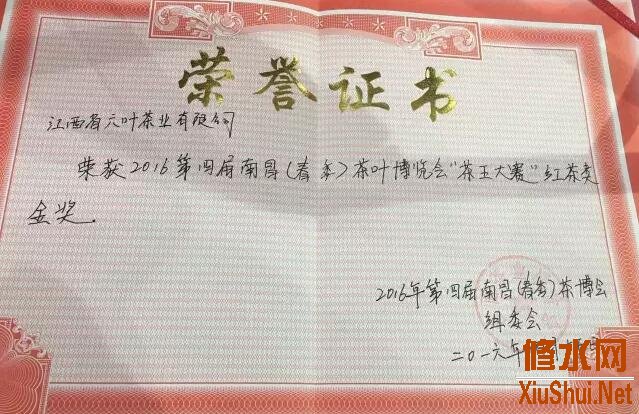 荣誉证书
江西省六叶茶业有限公司
荣获2016第四届南昌(春季)茶叶博览会"茶王大赛"红茶类
金奖.
2016年第四届南昌(春季)茶博会
组委会
二〇一六年
修水网
XiuShui.Net